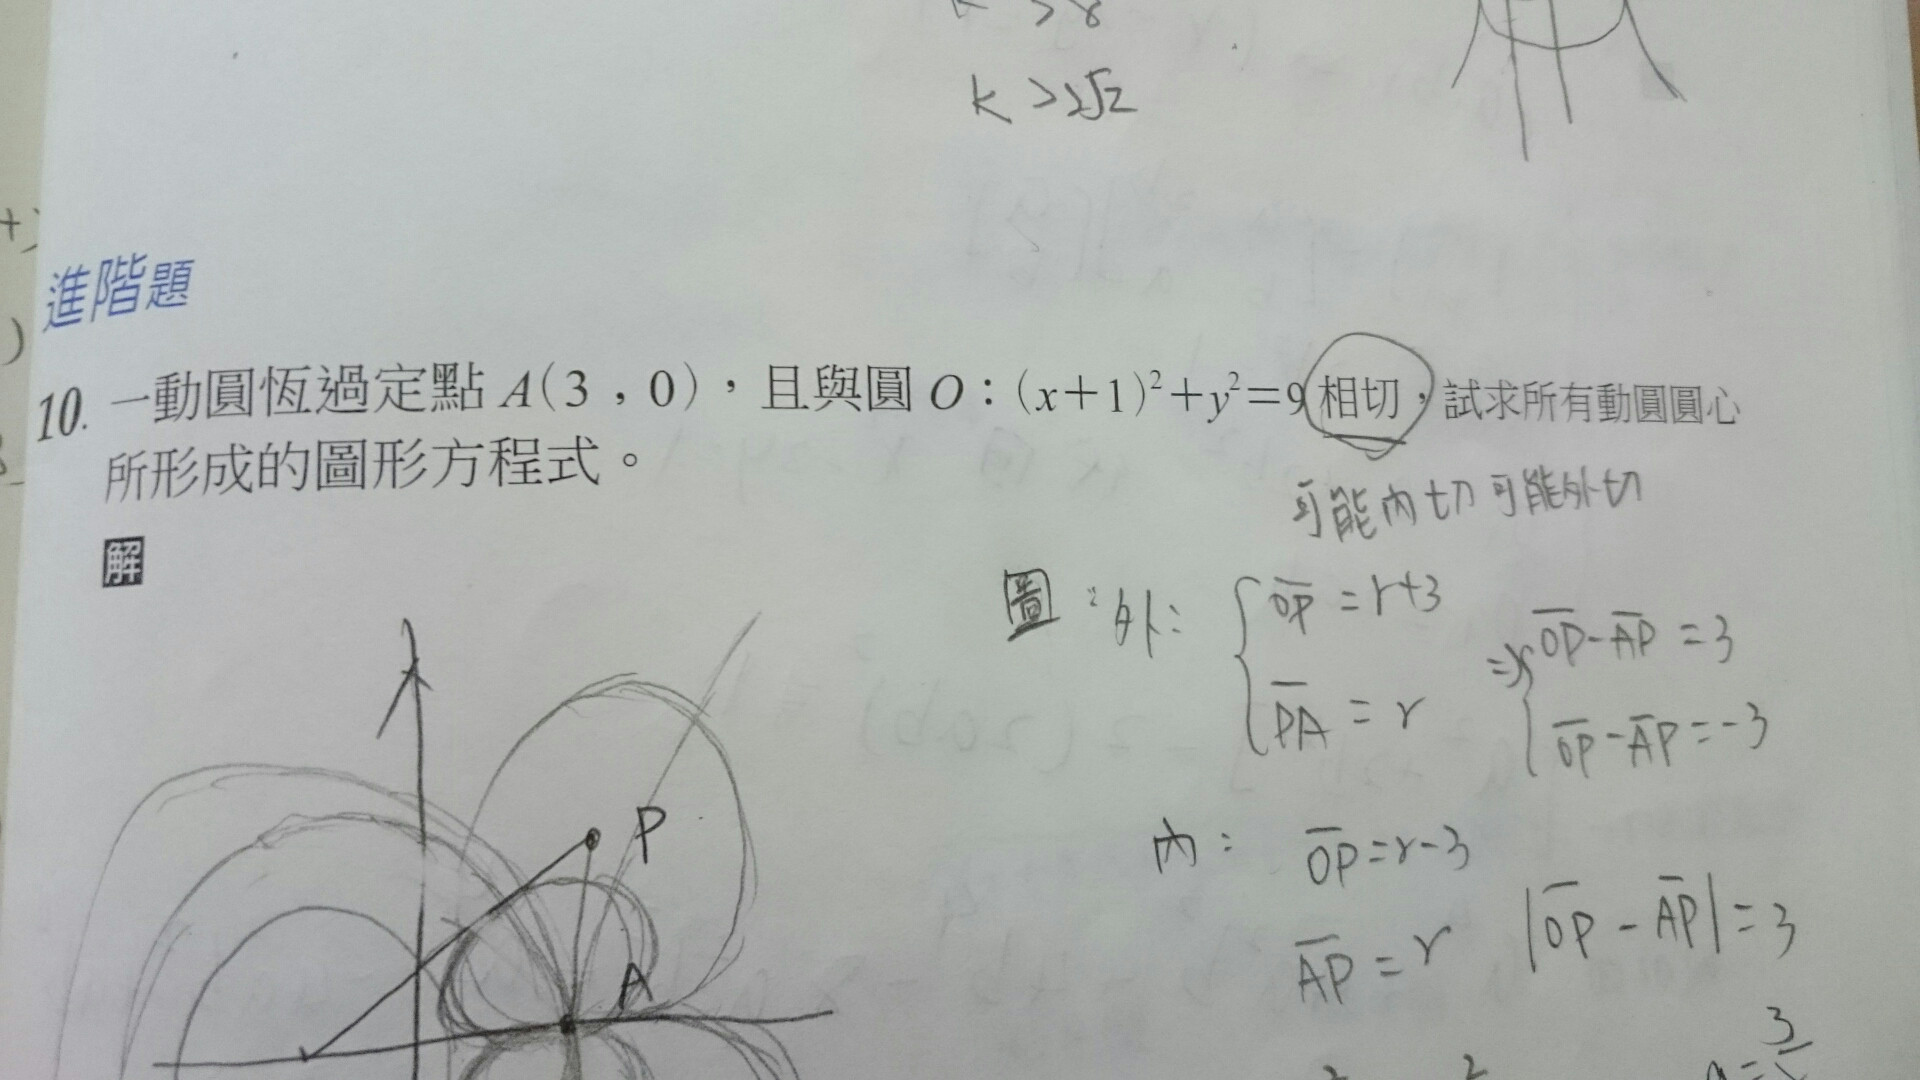 k > 8
k > 2√2
進階題
10. 一動圓恆過定點 A(3，0)，且與圓 O：(x+1)²+y²=9 相切，試求所有動圓圓心
所形成的圖形方程式。
可能內切可能外切
解
圖 外： { OP̅ = r+3
PA̅ = r
⇒ { OP̅-AP̅ = 3
OP̅-AP̅ = -3
P
內： OP̅ = r-3
AP̅ = r
|OP̅ - AP̅| = 3
A